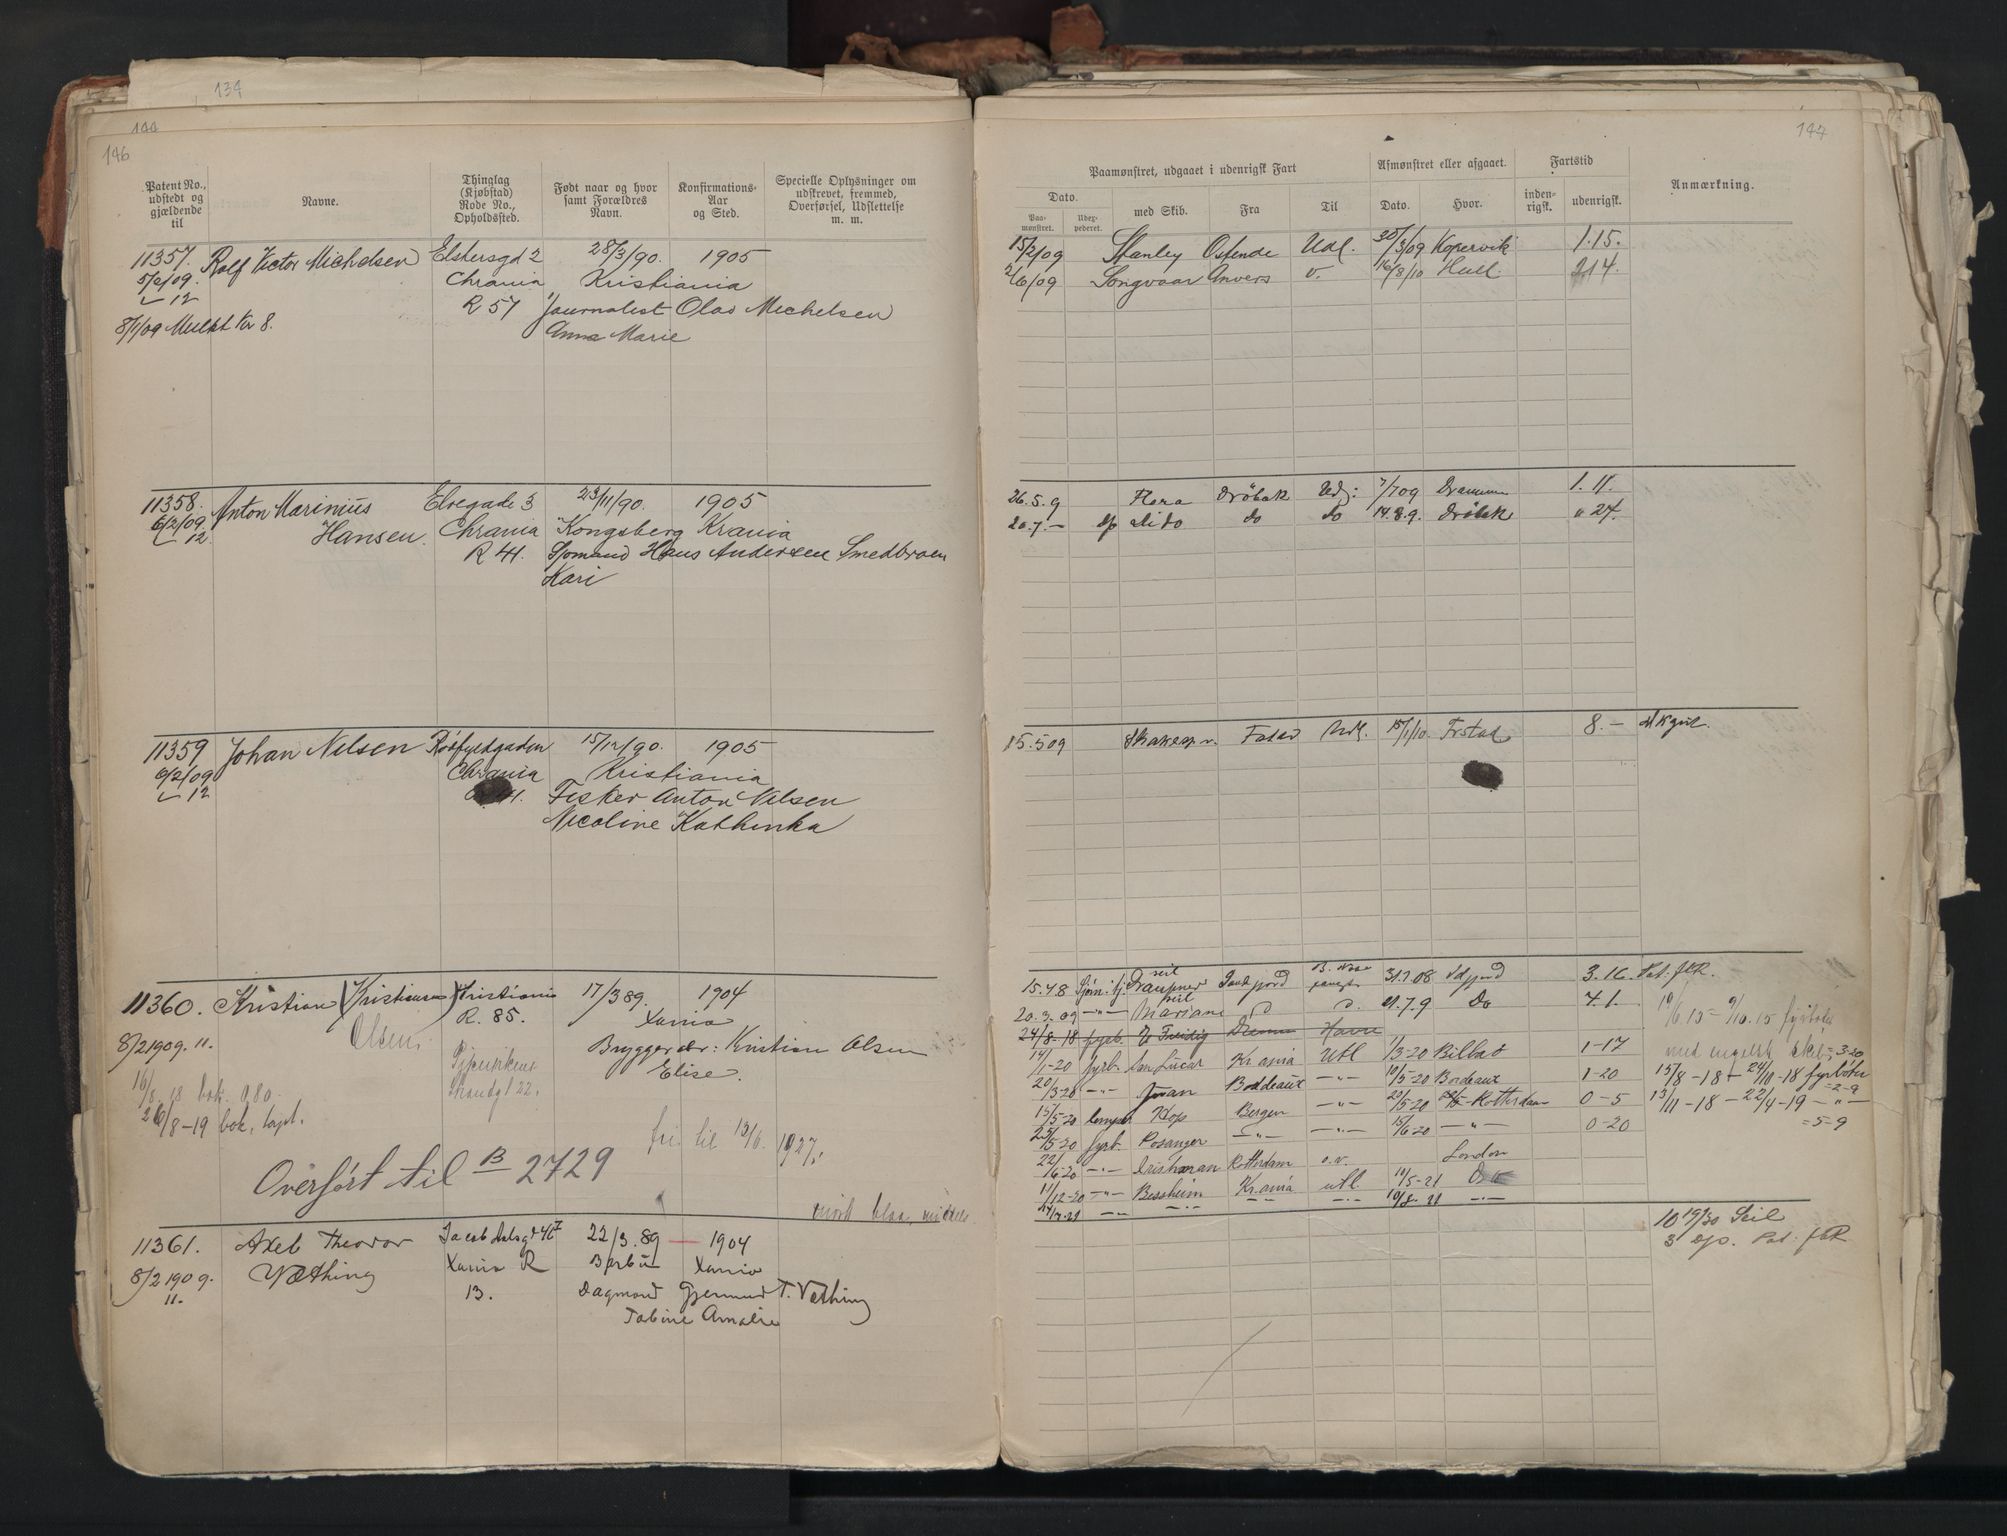 134
144
146
Patent No., udstedt og gjældende til
Navne.
Thinglag (Kjøbstad) Rode No., Opholdssted.
Født naar og hvor samt Forældres Navn.
Konfirmations-Aar og Sted.
Specielle Oplysninger om udskrevet, fremmed, Overførsel, Udslettelse m. m.
11357. Rolf Victor Michelsen Elstersgd 2 28/3/90. 1905
5/2/09. Chrania Kristiania
12 R 57 Journalist Olav Michelsen
8/1/09 Mulkt Kr 8. Anna Marie
11358. Anton Marinius Elvegade 3 23/11/90. 1905
6/2/09. Hansen. Chrania Kongsberg Krania
12. R 41. Sjømand Hans Andersen Smedbraen
Kari
11359 Johan Nilsen 15/12/90. 1905
6/2/09 Chrania Kristiania
12 Fisker Anton Nilsen
Nicoline Kathinka
11360. Kristian (Kristiansen) Kristiania 17/3 89. 1904
Olsen R. 85. Xania
8/2 1909. 11. Bryggerarb: Kristian Olsen
Elise.
Strandgt 22.
16/8 18 bok. 0,80.
26/8-19 bok, tapt.
fri til 13/6 1927.
Overført til B 2729
11361. Axel Theodor 22/3.89 — 1904
8/2 1909. Væthing Xania R Xania
11. 13. Dagmand Gjermund T. Væthing
Tobine Amalie
147
Paamønstret, udgaaet i udenrigsk Fart
Afmønstret eller afgaaet.
Fartstid
Anmærkning.
Dato.
Paa-mønstret.
Udex-pederet.
med Skib.
Fra
Til
Dato.
Hvor.
inden-rigsk.
udenrigsk.
15/2/09 Stanley Ostende Udl. 30/3/09 Kopervik 1.15.
2/6/09 Songvaar Anvers v. 16/8/10 Hull. 214.
26.5.9 Flora Drøbak Udl: 7/7 09 Drammen 1.11.
20.7.— Dido do do 14.8.9. Drøbak " 24.
15.5 09 Udl. 15/1/10. Frstad 8.—
15.4 8 seil Sandfjord 31.7.08 3.16.
20.3.09 —"— seil Mariane 21.7.9 Do 4.1.
24/8-18 fyrb. Havre
14/1-20 fyrb. Kr.ania Utl 1/3-20 Bilbao 1-17
20/3-20 —"— Bordeaux —"— 10/5-20 Bordeaux 1-20
15/5-20 Bergen —"— 20/5-20 Rotterdam 0-5
25/5-20 fyrb. Rosanger —"— 15/6-20 —"— 0-20
22/6-20 —"— Rotterdam London
11/12-20 —"— Bessheim Kr.ania utl. 14/5-21
—"— —"— 10/8-21 —"—
10/6 15 — 9/10.15 fyrbøter
med engelsk skib = 3-20
15/8-18 — 24/10-18 fyrbøter = 2-9
13/11-18 — 22/4-19 —"— = 5-9
10 19/30 Seil